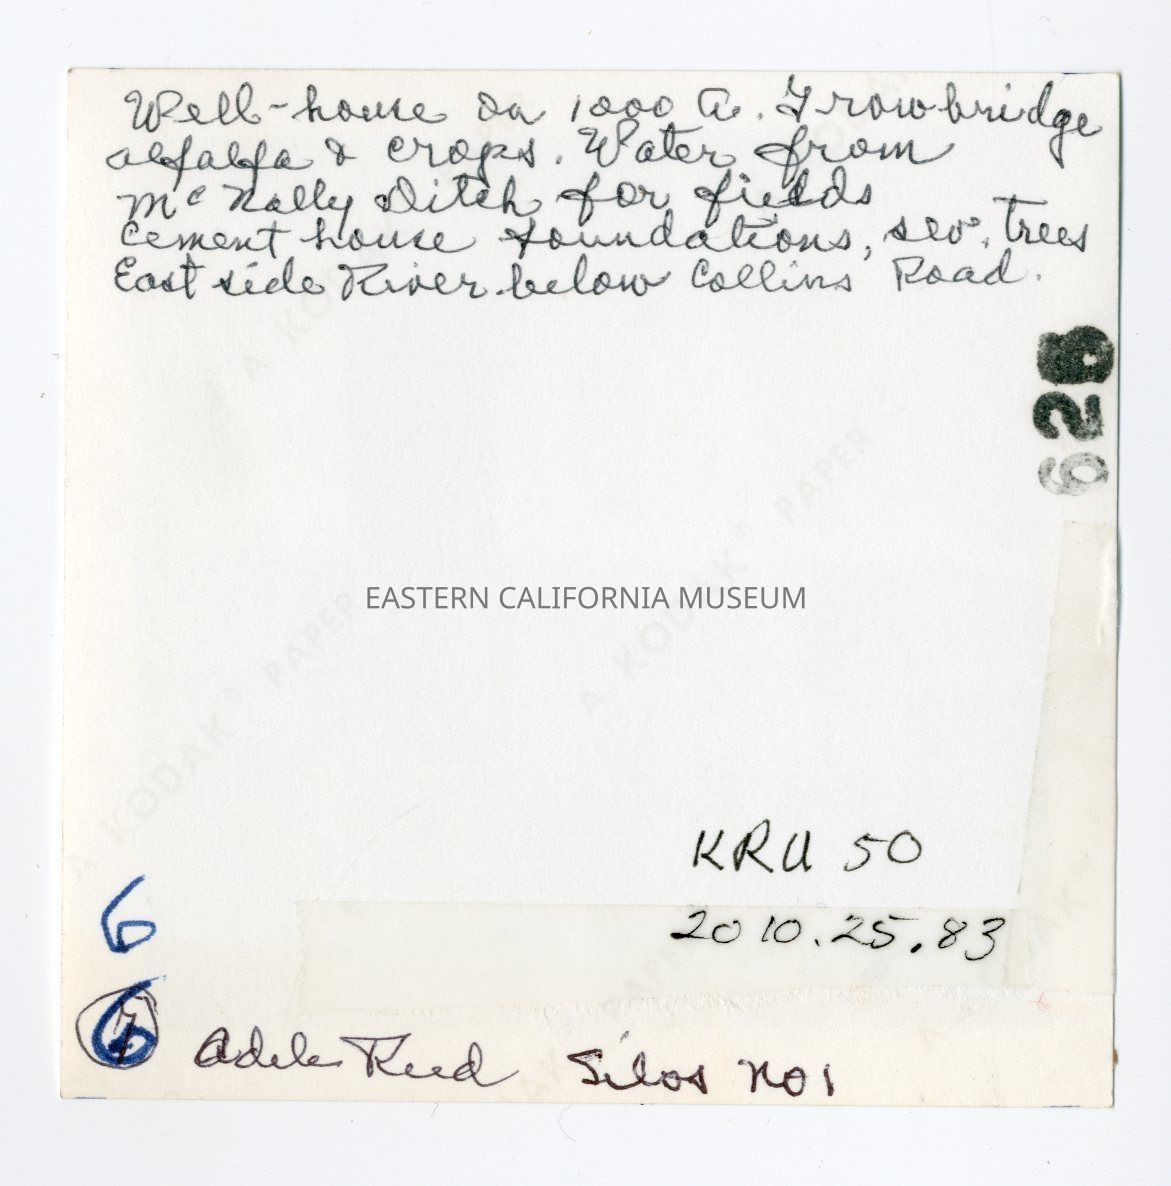 Well-house on 1000 A. Trowbridge
alfalfa & crops. Water from
McNally Ditch for fields
Cement house foundations, sev. trees
East side River below Collins Road.
628
A KODAK PAPER
A KODAK® PAPER
A KODAK® PAPER
EASTERN CALIFORNIA MUSEUM
KRU 50
2010.25.83
6
6
Adele Reed Silos No 1